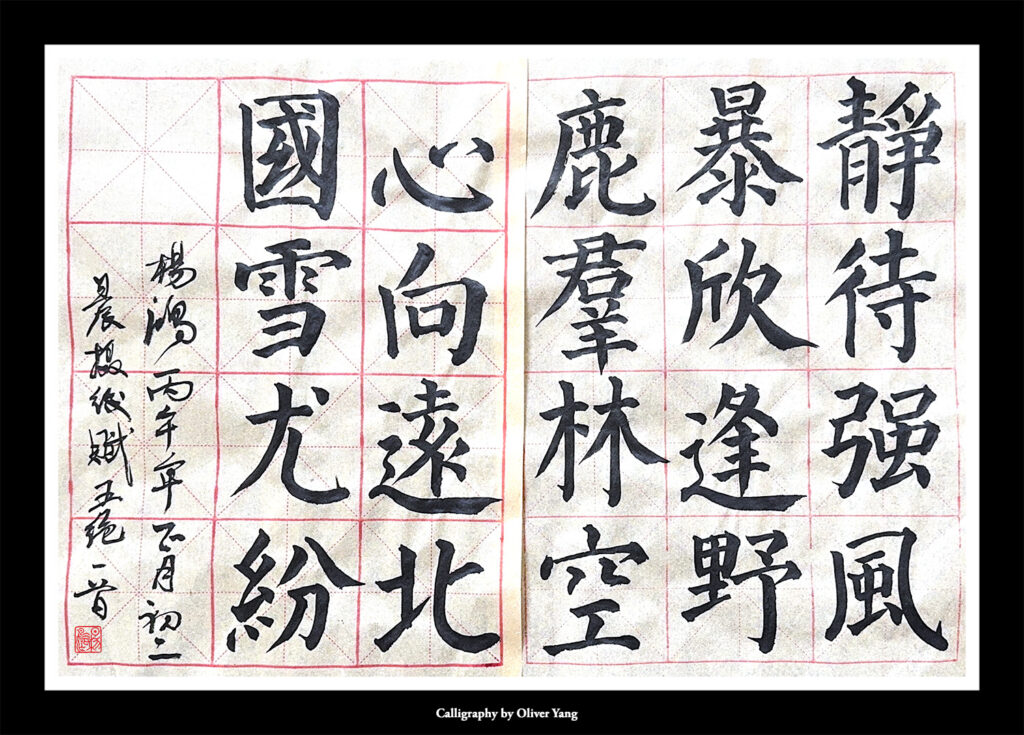 靜待强風
暴欣逢野
鹿羣林空
心向遠北
國雪尤紛
楊鴻丙午年正月初二
晨援紙賦五绝一首
Calligraphy by Oliver Yang